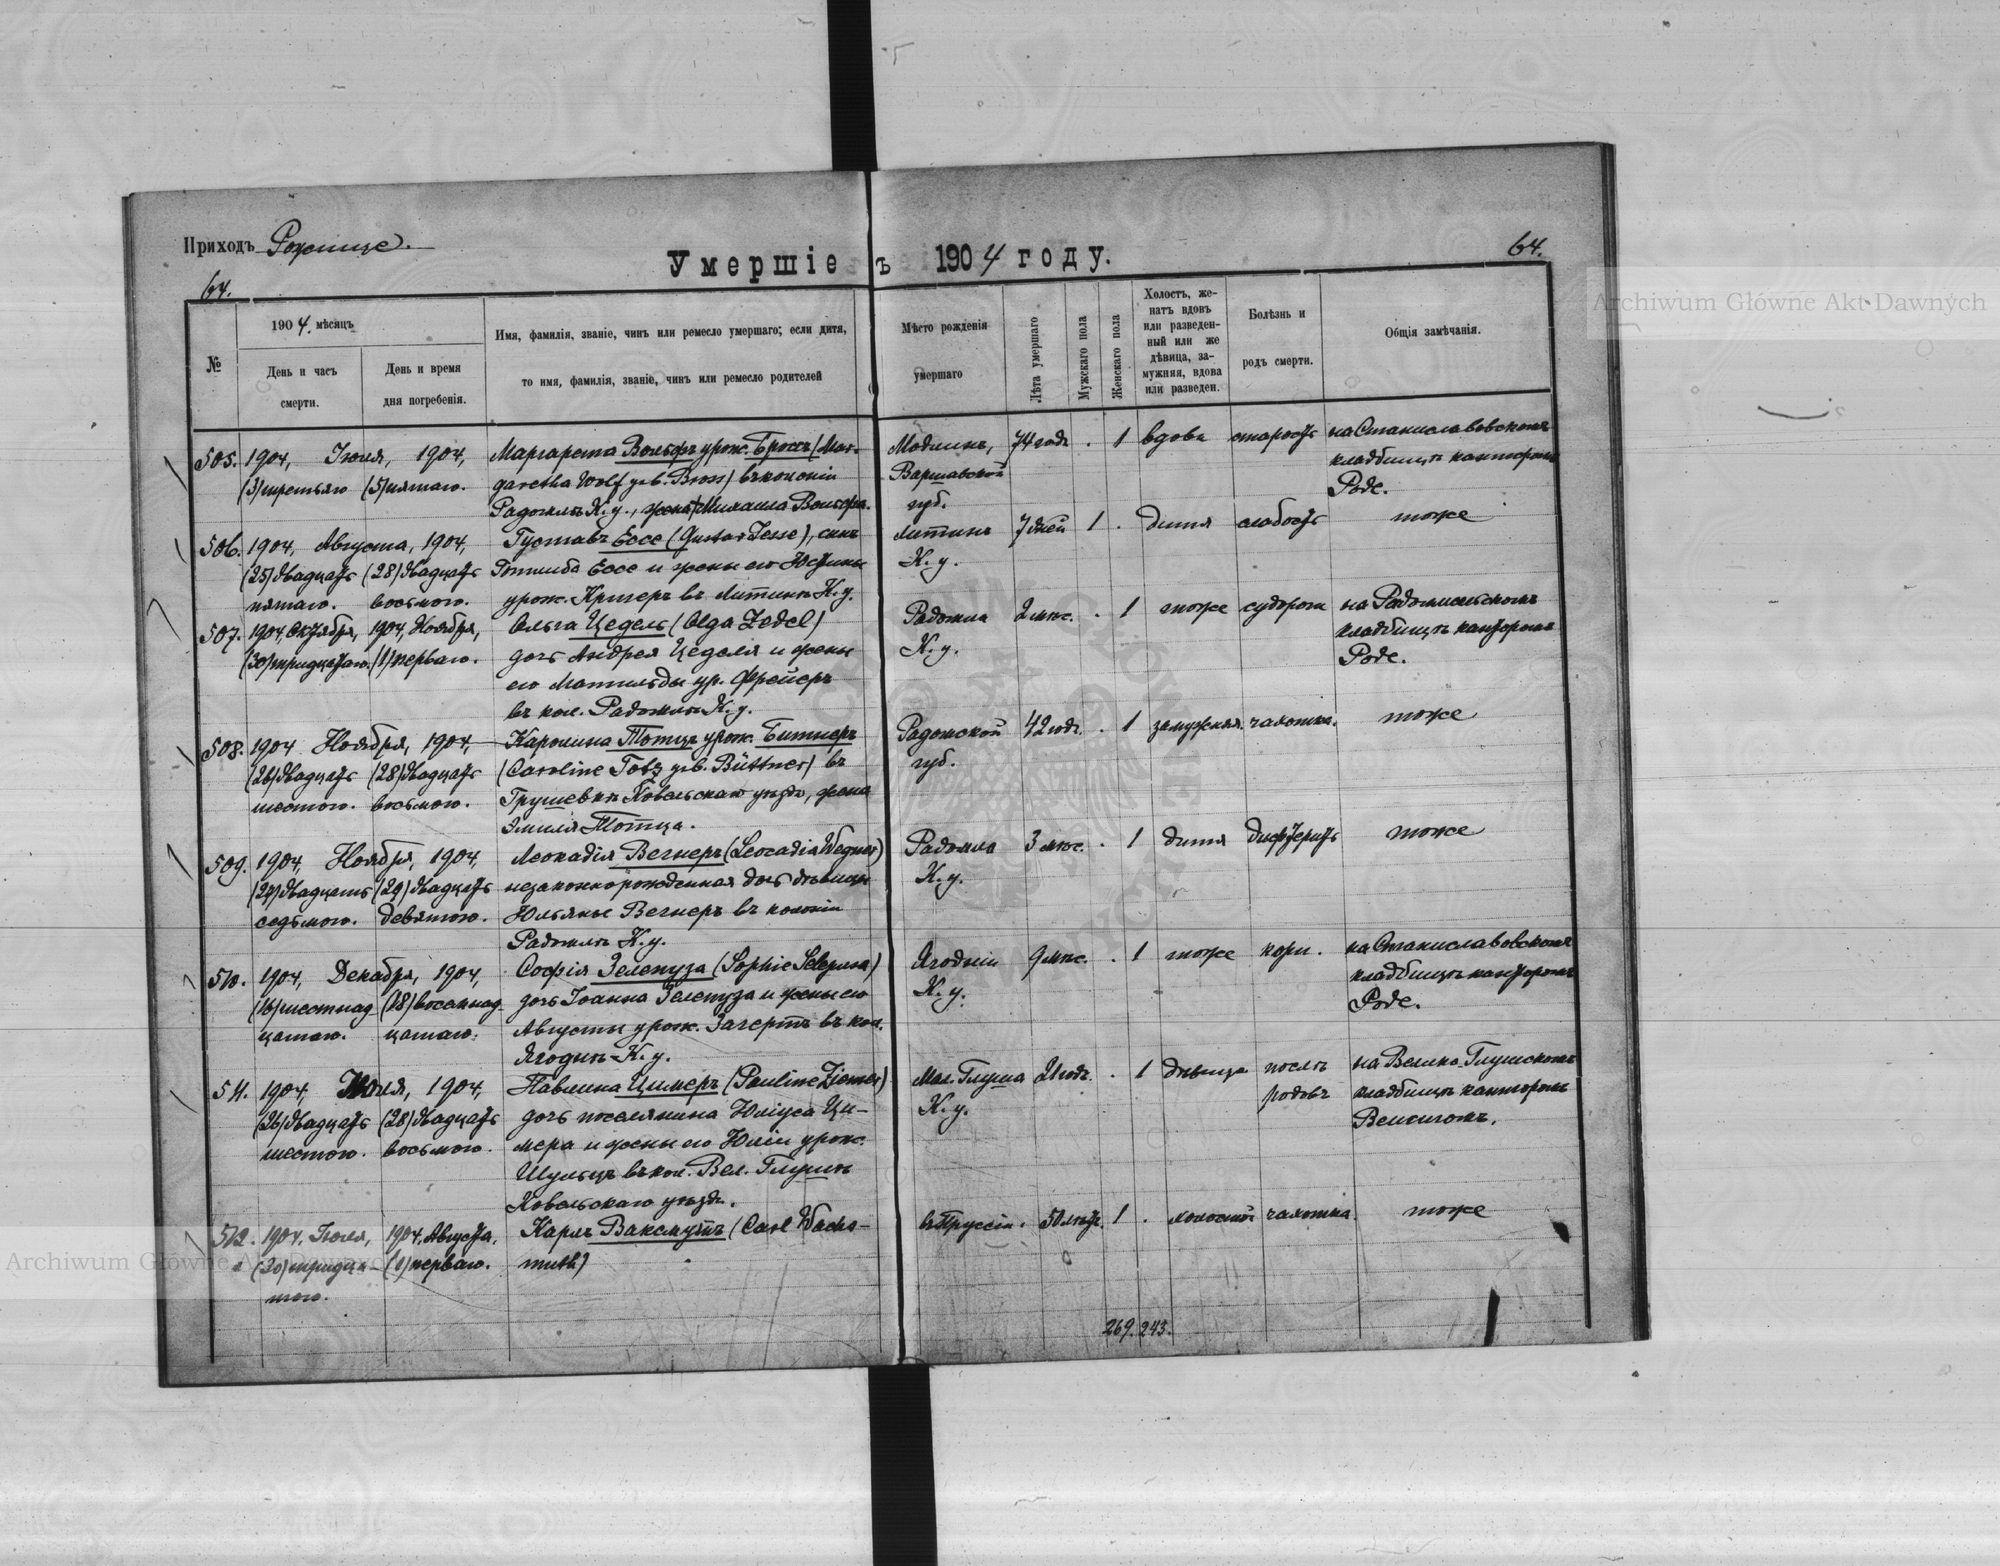 Приходъ Рожище.
Умершіе въ 1904 году.
64.
64.
№
1904. мѣсяцъ
День и часъ смерти.
День и время дня погребенія.
Имя, фамилія, званіе, чинъ или ремесло умершаго; если дитя,
то имя, фамилія, званіе, чинъ или ремесло родителей
Мѣсто рожденія умершаго
Лѣта умершаго
Мужскаго пола
Женскаго пола
Холостъ, же-
натъ вдовъ
или разведен-
ный или же
дѣвица, за-
мужняя, вдова
или разведен.
Болѣзнь и
родъ смерти.
Общія замѣчанія.
505. 1904, Іюля, 1904, Маргарета Вольфъ урож. Броссъ (Mar- Модлинъ, 74 годъ . 1 вдова старость на Станиславовскомъ
(3) третьяго (5) пятаго. garetha Wolf geb. Bross) въ колоніи Варшавской кладбищѣ канторомъ
Радомлѣ К. у., жена Михаила Вольфа. губ. Роде.
506. 1904, Августа, 1904, Густавъ Ессе (Gustav Jesse), сынъ Литинъ 7 дней 1 . дитя слабость тоже
(25) двадцать (28) двадцать Готлиба Ессе и жены его Юстины К. у.
пятаго. восьмого. урож. Кригеръ въ Литинѣ К. у.
507. 1904, Октября, 1904, Ноября, Ольга Цедель (Olga Zedel) Радомля 2 мѣс. . 1 тоже судорога на Радомльскомъ
(30) тридцатаго. (1) перваго. дочь Андрея Цеделя и жены К. у. кладбищѣ канторомъ
его Матильды ур. Фрейеръ Роде.
въ кол. Радомлѣ К. у.
508. 1904 Ноября, 1904, Каролина Тотцъ урож. Битнеръ Радомской 42 годъ. . 1 замужняя. чахотка. тоже
(26) двадцать (28) двадцать (Caroline Totz geb. Büttner) въ губ.
шестого. восьмого. Грушевкѣ Ковельскаго уѣзда, жена
Эмиля Тотца.
509. 1904, Ноября, 1904, Леокадія Вегнеръ (Leocadia Wegner) Радомля 3 мѣс. . 1 дитя дифтеритъ тоже
(27) двадцать (29) двадцать незаконнорожденная дочь дѣвицы К. у.
седьмого. девятого. Юльяны Вегнеръ въ колоніи
Радомлѣ К. у.
510. 1904, Декабря, 1904, Софія Зелепуза (Sophie Selepusa) Ягодный 9 мѣс. . 1 тоже кори. на Станиславовскомъ
(16) шестнад (18) восемнад- дочь Іоанна Зелепуза и жены его К. у. кладбищѣ канторомъ
цатаго. цатаго. Августы урож. Загертъ въ кол. Роде.
Ягодинѣ К. у.
511. 1904, Іюля, 1904, Павлина Цимеръ (Pauline Ziemer) Мал. Глуша 21 годъ. . 1 дѣвица послѣ на Велико-Глушскомъ
(26) двадцать (28) двадцать дочь поселянина Юліуса Ци- К. у. родовъ кладбищѣ канторомъ
шестого. восьмого. мера и жены его Юліи урож.
Шульцъ въ кол. Вел. Глушѣ
Ковельскаго уѣзда.
512. 1904, Іюля, 1904, Августа, Карлъ Ваксмутъ (Carl Wachs- въ Пруссіи. 50 лѣтъ. 1 . холостой чахотка. тоже
(30) тридца- (1) перваго. muth)
таго.
269. 243.
Archiwum Główne Akt Dawnych
Archiwum Główne Akt Dawnych